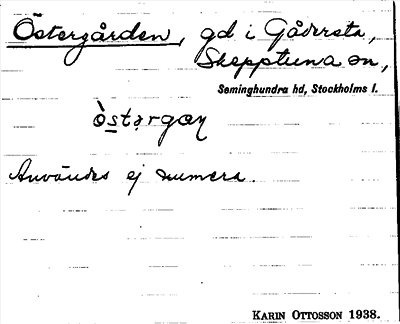 Östergården, gd i Gådersta,
Skepptuna sn,
Seminghundra hd, Stockholms l.
Användes ej numera.
KARIN OTTOSSON 1938.